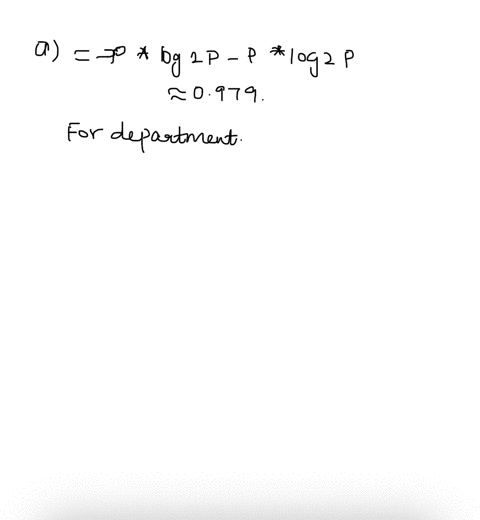 a) = -P * log 2 P - P * log 2 P
≈ 0.979.
For department.